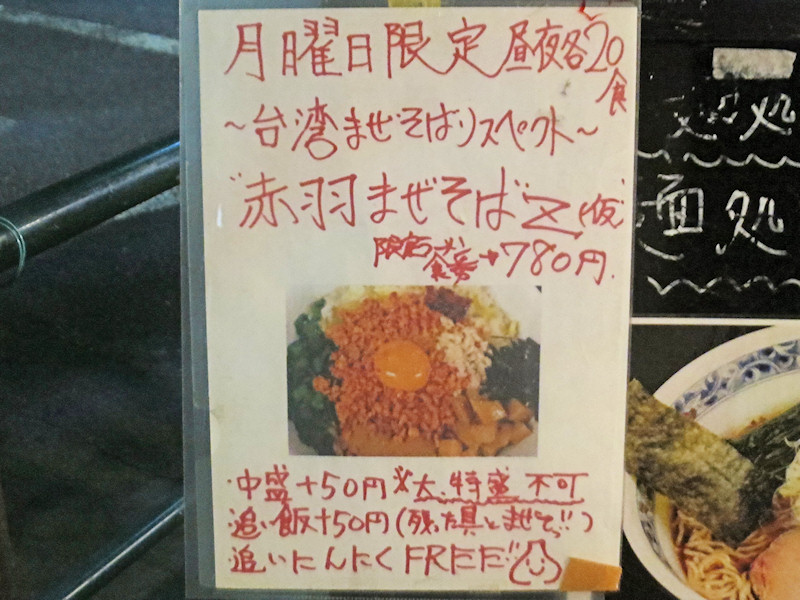 月曜日限定 昼夜各20食
～台湾まぜそばリスペクト～
"赤羽まぜそば"Z(仮)
780円.
・中盛+50円 ※大、特盛 不可
・追い飯+50円(残った具とまぜて!!)
・追いにんにくFREE!!
処
麺処